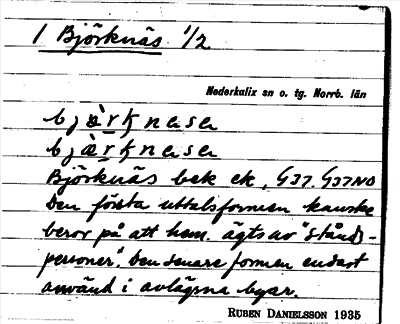 1 Björknäs 1/2
Nederkalix sn o. tg. Norrb. län
Björknäs bek ek, G37. G37NO
Den första uttalsformen kanske
beror på att hem. ägts av "stånds-
personer". Den senare formen endast
använd i avlägsna byar.
RUBEN DANIELSSON 1935